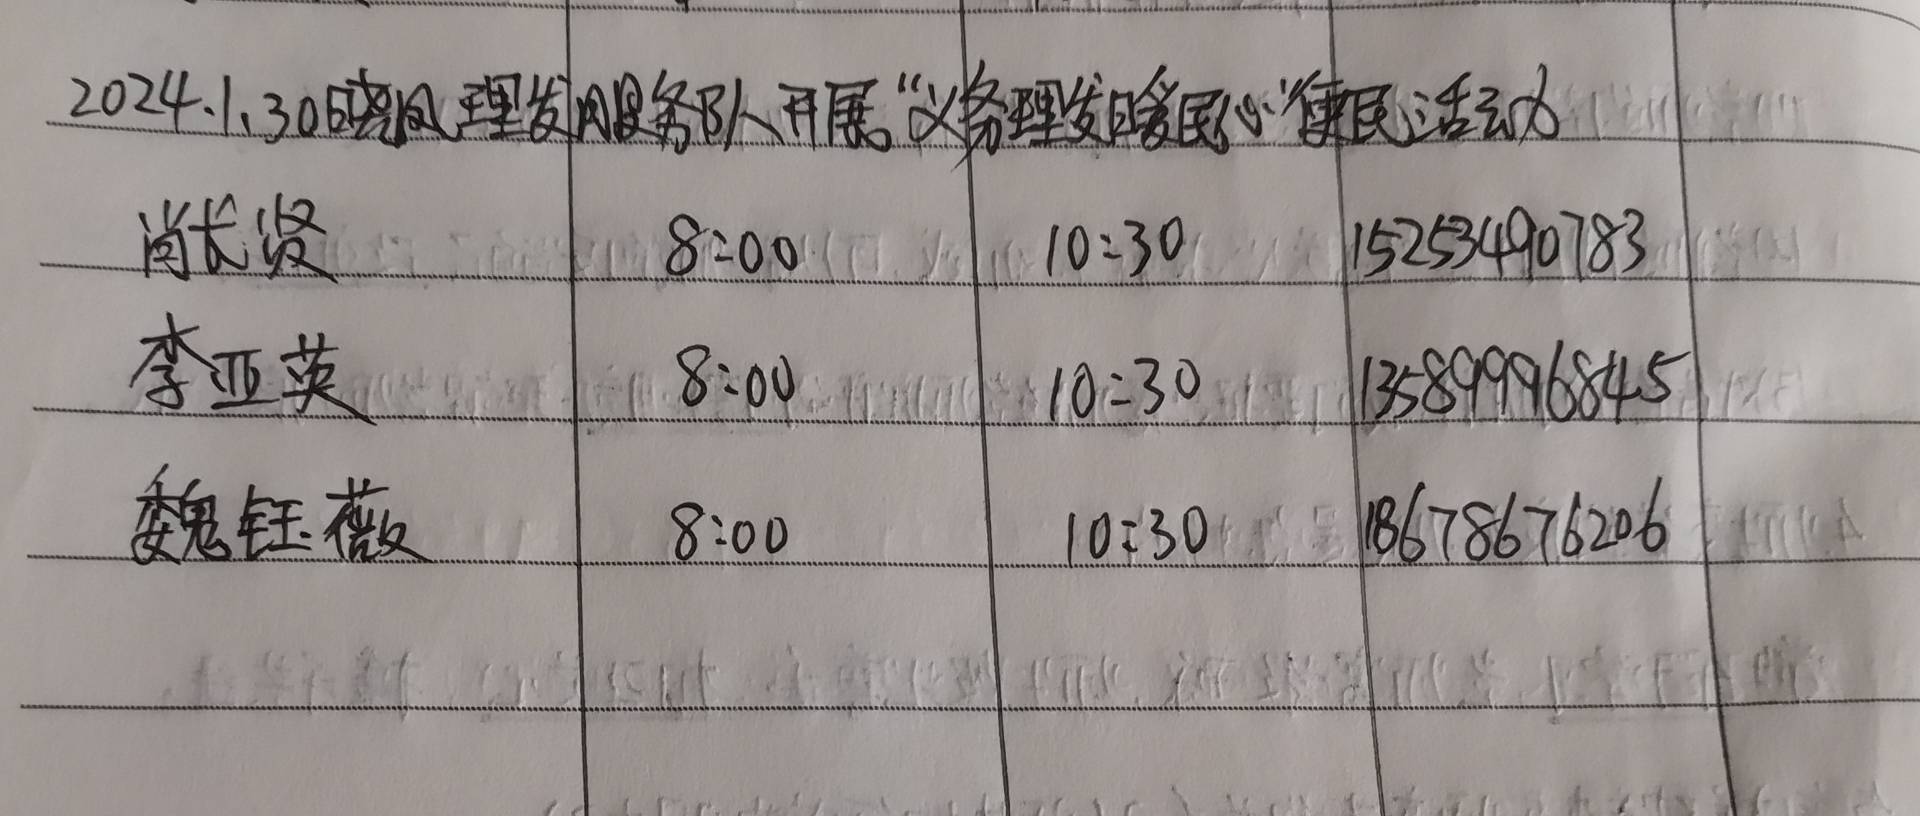 2024.1.30晓风理发服务队开展“义务理发暖民心”便民活动
肖长贤 8:00 10:30 15253490783
李亚英 8:00 10:30 13589996845
魏钰薇 8:00 10:30 18678676206